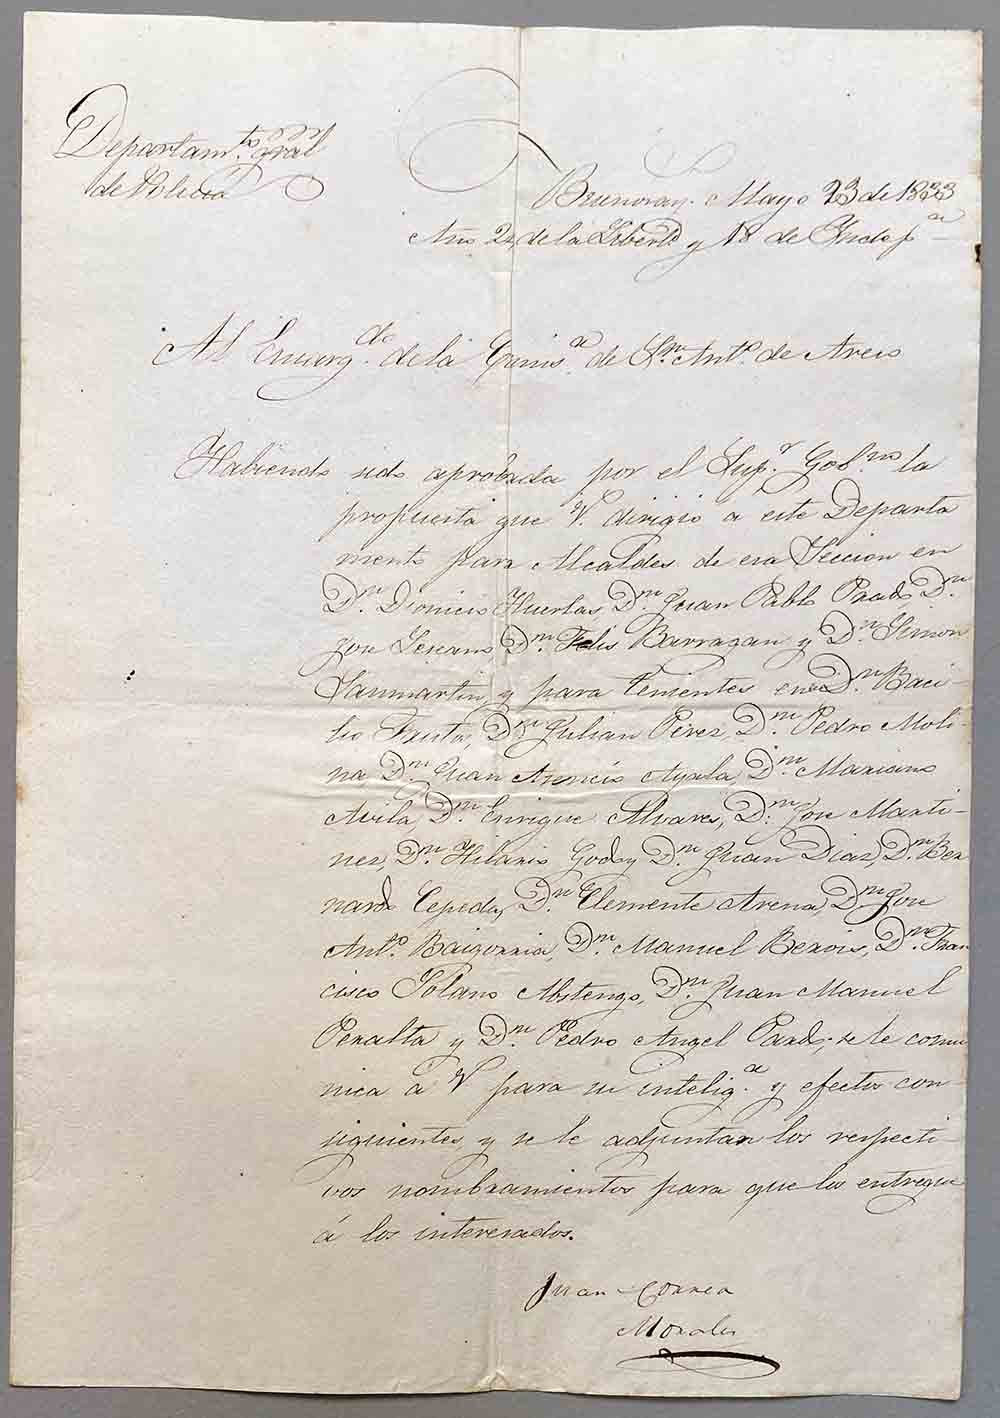 Departam.to gral
de Policia
Buenos ay.s Mayo 23 de 1833
Año 24 de la Libert.d y 18 de Indep.a
Al Encarg.do de la Comis.a de S.n Ant.o de Areco
Habiendo sido aprobada por el Sup.r Gob.no la
propuesta que V. dirigio a este Departa
mento para Alcaldes de esa Seccion en
D.n Dionicio Huertas D.n Juan Pablo Pardo, D.n
Jose Lescano, D.n Felis Barragan y D.n Simon
Sanmartin, y para tenientes en D.n Baci-
lio Frutos, D.n Julian Perez, D.n Pedro Moli-
na, D.n Juan Asencio Ayala, D.n Mariano
Avila, D.n Enrique Alvares, D.n Jose Marti-
nez, D.n Hilario Godoy D.n Juan Diaz, D.n Ber
nardo Cepeda, D.n Clemente Arena, D.n Jose
Ant.o Baigorria, D.n Manuel D.n Fran
cisco Solano D.n Juan Manuel
Peralta y D.n Pedro Angel Pardo; se le comu
nica á V para su intelig.a y efectos con-
siguientes, y se le adjuntan los respecti-
vos nombramientos para que los entregue
á los interesados.
Juan Correa
Morales